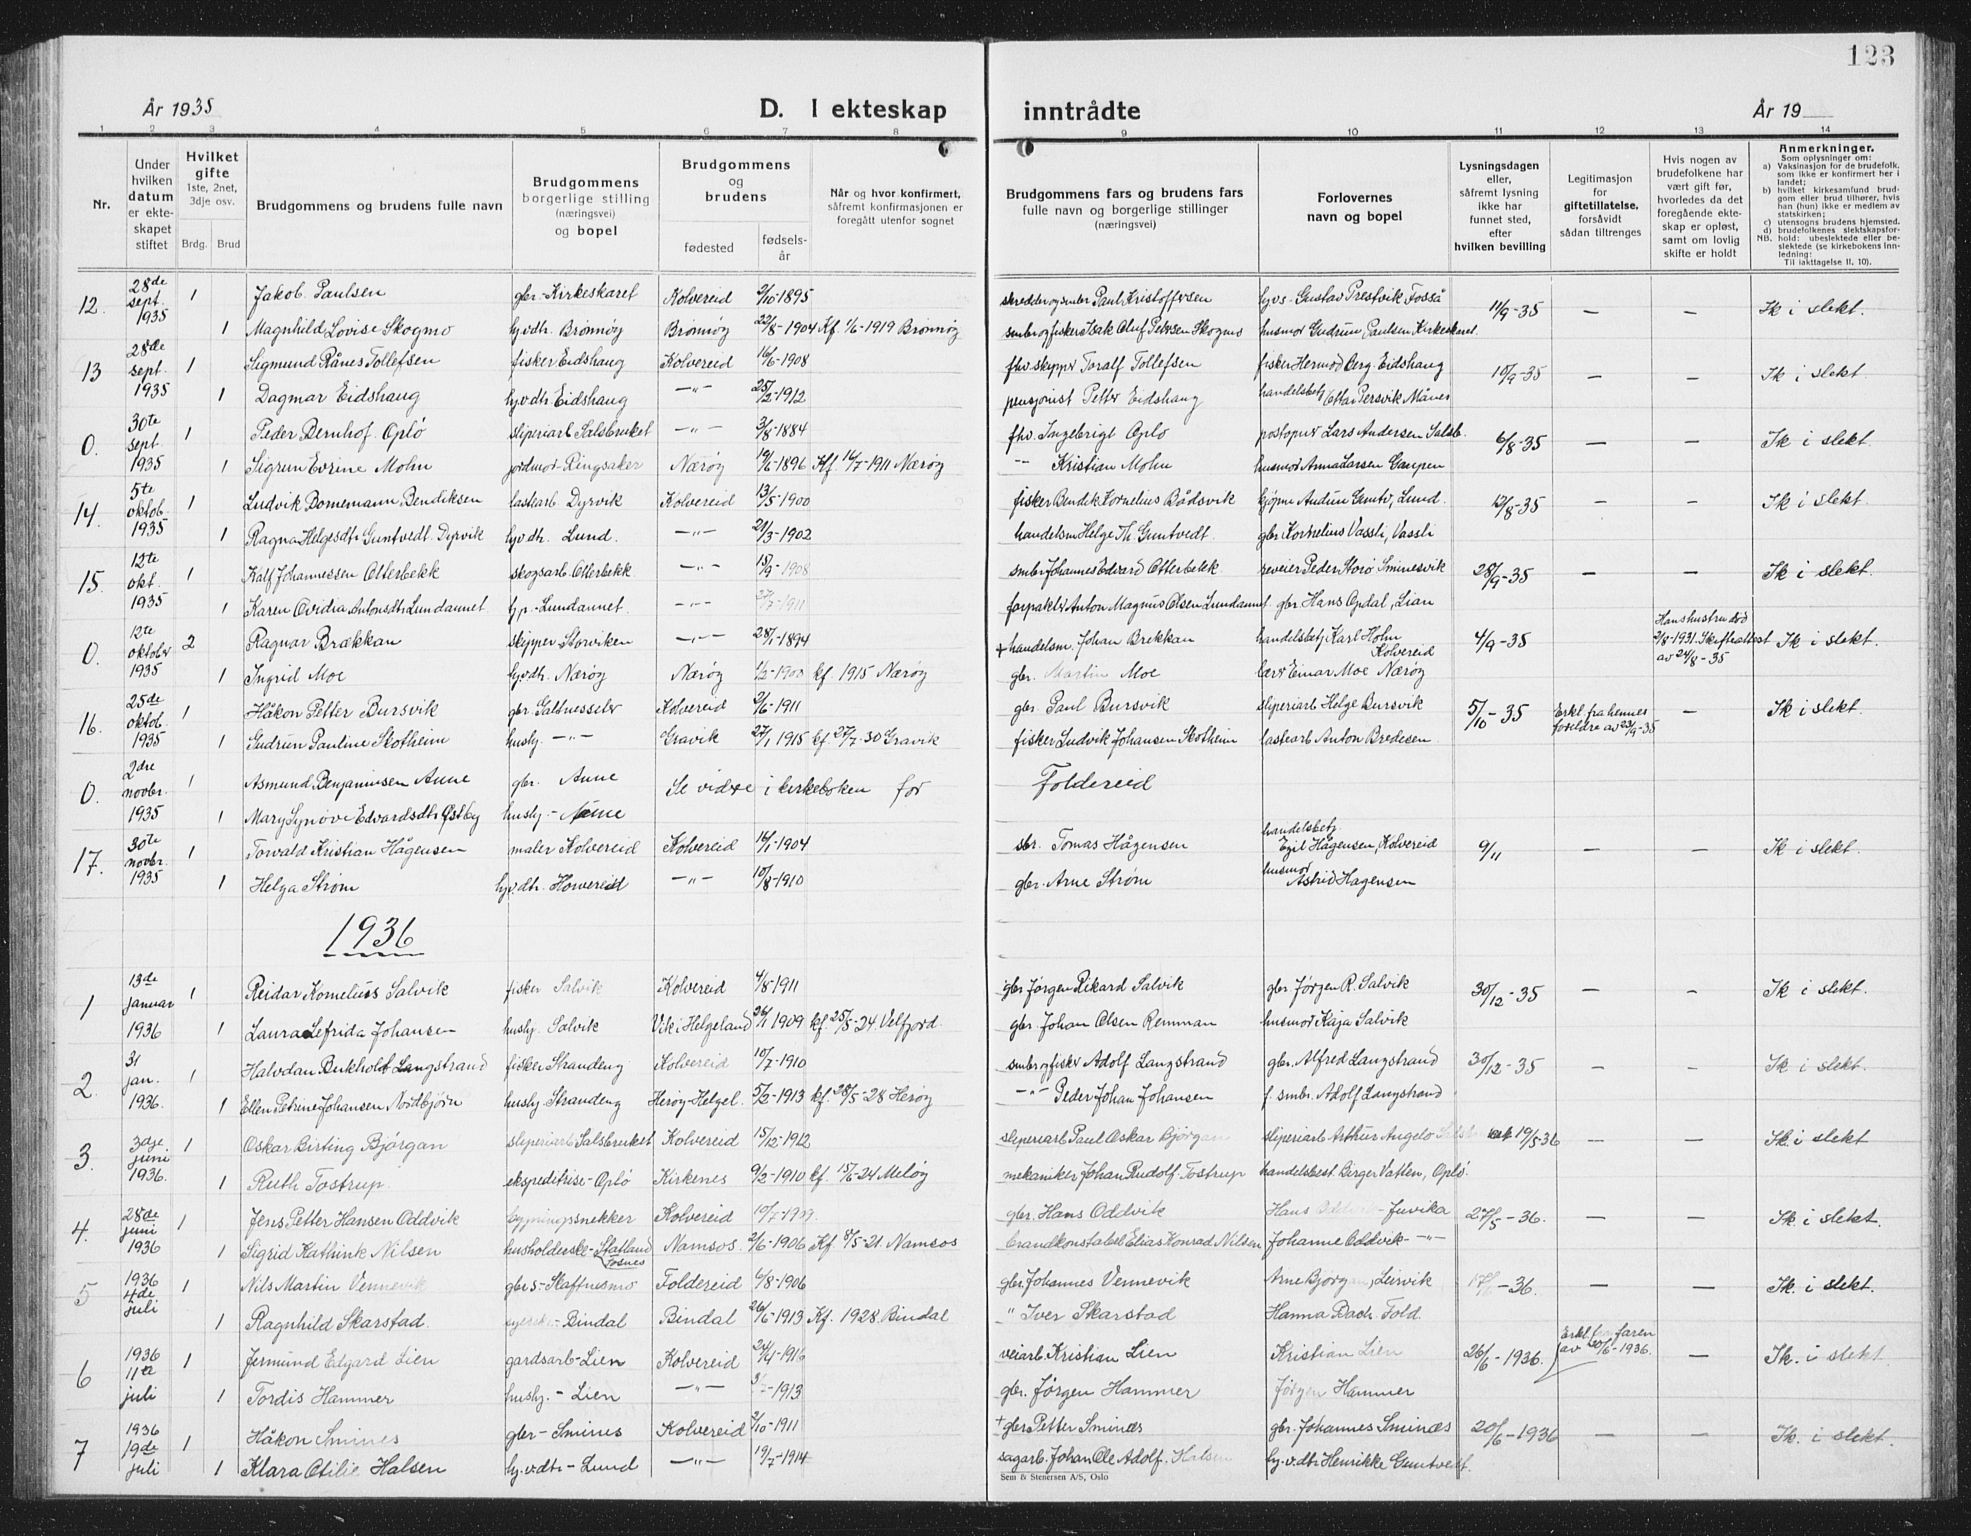 123
År 1935 D. I ekteskap inntrådte År 19
1 2 3 4 5 6 7 8 9 10 11 12 13 14
Nr.
Under hvilken datum er ekteskapet stiftet
Hvilket gifte 1ste, 2net, 3dje osv.
Brdg. Brud
Brudgommens og brudens fulle navn
Brudgommens borgerlige stilling (næringsvei) og bopel
Brudgommens og brudens
fødested fødselsår
Når og hvor konfirmert, såfremt konfirmasjonen er foregått utenfor sognet
Brudgommens fars og brudens fars fulle navn og borgerlige stillinger (næringsvei)
Forlovernes navn og bopel
Lysningsdagen eller, såfremt lysning ikke har funnet sted, efter hvilken bevilling
Legitimasjon for giftetillatelse, forsåvidt sådan tiltrenges
Hvis nogen av brudefolkene har vært gift før, hvorledes da det foregående ekteskap er opløst, samt om lovlig skifte er holdt
Anmerkninger.
Som oplysninger om:
a) Vaksinasjon for de brudefolk, som ikke er konfirmert her i landet;
b) hvilket kirkesamfund brudgom eller brud tilhører, hvis han (hun) ikke er medlem av statskirken;
c) utensogns brudens hjemsted.
d) brudefolkenes slektskapsforhold: ubeslektede eller beslektede (se kirkebokens innledning:
NB. Til iakttagelse II, 10).
12. 28de sept. 1935 1 Jakob Paulsen gbr.-Kirkeskaret Kolvereid 9/10-1895 skredder og smbr Paul Kristoffersen hjvs-Gustav Prestvik Fosså 11/9-35 — — Ik i slekt.
1 Magnhild Lovise Skogmo hjvdtr. Brønnøy Brønnøy 22/8-1904 Kf. 1/6-1919 Brønnøy smbr og fisker Isak Oluf Petersen Skogmo husmor Gudrun Paulsen Kirkeskaret
13 28de sept. 1935 1 Sigmund Rånes Tollefsen fisker Eidshaug Kolvereid 16/6-1908 fhv. skipper Toralf Tollefsen fisker Hermod Berg. Eidshaug 10/9-35 — — Ik i slekt
1 Dagmar Eidshaug hjvdtr Eidshaug —"— 25/2-1912 pensjonist Petter Eidshaug handelsbetj Ottar Persvik Måneø
0. 30te sept. 1935 1 Peder Bernhof. Oplø sliperiarb Salsbruket —"— 3/8-1884 fhv. Ingebrigt Oplø postopnr Lars Andersen Salsb. 6/8-35 — — Ik i slekt
1 Sigrun Evrine Mohn jordmor-Ringsaker Nærøy 19/6-1896 Kf. 16/7-1911 Nærøy —"— Kristian Mohn husmor Anna Larsen Gaupen
14. 5te oktob. 1935 1 Ludvik Bornemann Bendiksen lastearb Dyrvik Kolvereid 13/5-1900 fisker Bendik Kornelius Bådsvik kjøpm Audun Guntv, Lund. 12/8-35 — — Ik i slekt.
1 Ragna Helgesdtr Guntvedt. Dyrvik hjvdtr. Lund. —"— 21/3-1902 handelsm Helge Th. Guntvedt. gbr Kornelius Vassli, Vassli
15. 12te okt. 1935 1 Kalf Johannessen Otterbekk skogsarb Otterbekk —"— 15/9-1908 smbr Johannes Edvard Otterbekk reveier Peder Storø Sminesvik 28/9-35 — — Ik i slekt.
1 Karen Ovidia Antonsdtr Lundamnet hjp-Lundamnet. —"— 27/7-1911 forpakter Anton Magnus Olsen Lundamnet gbr Hans Opdal, Lian
0. 12te oktober 1935 2 Ragnar Brækkan skipper Storviken —"— 28/1-1894 + handelsm. Johan Brekkan handelsbetj Karl Holm Kolvereid 4/9-35 Hans hustru død 2/8-1931. Skifteattest av 24/8-35 Ik i slekt.
1 Ingrid Moe hjvdtr. Nærøy Nærøy 1/2-1900 kf. 1915 Nærøy gbr. Martin Moe lærer Einar Moe Nærøy
16. 25de oktob. 1935 1 Håkon Petter Bursvik gbr Galtnesselv Kolvereid 2/6-1911 gbr. Paul Bursvik sliperiarb Helge Bursvik 5/10-35 Erkl fra hennes foreldre av 23/9-35 — Ik i slekt.
1 Gudrun Pauline Skotheim hushj. —"— Gravik 27/1 1915 kf. 27/7-30 Gravik fisker Ludvik Johansen Skotheim lastearb Anton Bredesen
0. 2dre novbr. 1935 1 Asmund Benjaminsen Aune gbr. Aune Se videre i kirkeboken for Foldereid
1 Mary Synøve Edvardsdtr Østby hushj.-Aune
17. 30te novbr. 1935 1 Torvald Kristian Hågensen maler Kolvereid Kolvereid 14/1-1904 sbr. Tomas Hågensen handelsbetj. Egil Hågensen, Kolvereid 9/11 — — Ik i slekt.
1 Helga Strøm hjvdtr. Horvereid —"— 10/8-1910 gbr. Arne Strøm husmor Astrid Hagensen
1936
1 13de januar 1936 1 Reidar Kornelius Salvik fisker Salvik Kolvereid 4/8-1911 gbr Jørgen Rikard Salvik gbr. Jørgen R. Salvik 30/12-35 — — Ik i slekt.
1 Laura Lefrida Johansen hushj. Salvik Vik i Helgeland 26/1 1909 kf. 25/5-24 Velfjord. gbr. Johan Olsen Remman husmor Kaja Salvik
2. 31 jan. 1936. 1 Halvdan Burkholt Langstrand fisker Strandeng Kolvereid 10/7-1910 smbr og fisker Adolf Langstrand gbr. Alfred Langstrand 30/12-35 — — Ik i slekt.
1 Ellen Petrine Johansen Nordbjørn hushj. Strandeng Herøy Helgel. 5/2-1913 kf. 28/5-28 Herøy —"— Peder Johan Johansen f. smbr. Adolf Langstrand
3. 3dje juni 1936. 1 Oskar Birting Bjørgan sliperiarb Salsbruket Kolvereid 15/12-1912 sliperiarb Paul Oskar Bjørgan sliperiarb Arthur Angelo 19/5 36 — — Ik. i slekt
1 Ruth Tostrup. ekspeditrise-Oplø Kirkenes 9/2-1910 kf. 15/6-24 Meløy mekaniker Johan Rudolf Tostrup handelsbest. Birger Vatten, Oplø
4. 28de juni 1936 1 Jens Petter Hansen Oddvik bygningssnekker Kolvereid 10/7-1909. gbr. Hans Oddvik Hans Oddvik-Juvika 27/5-36. — — Ik i slekt.
1 Sigrid Kathink Nilsen husholderske-Statland Fosnes Namsos 2/6-1906 Kf. 8/5-21. Namsos brandkonstabel Elias Konrad Nilsen Johanne Oddvik —"—
5 1936 4de juli 1 Nils Martin Vennevik gbr s-Skaffnesmo Foldereid 6/8-1906 gbr. Johannes Vennevik Arne Bjørgan, Leirvik 17/6-36. — — Ik. i slekt.
1 Ragnhild Skarstad. -Bindal Bindal 26/6-1913 Kf. 1928. Bindal " Iver Skarstad Hanna Bach Fold.
6 1936 11te juli 1 Jermund Edgard Lien gardsarb-Lien Kolvereid 24/4-1916 veiarb. Kristian Lien Kristian Lien 26/6-1936. Erkl. fra faren av 20/6-1936. — Ik. i slekt
1 Tordis Hammer hushj.-Lien —"— -1913 gbr. Jørgen Hammer Jørgen Hammer
7 1936 19de juli 1 Håkon Smines gbr-Smines Kolvereid 2/10-1911 + gbr Petter Sminæs gbr. Johannes Sminæs 20/6-1936 — — Ik. i slekt.
1 Klara Otilie Halsen hj.v.dtr-Lund —"— 19/7-1914 sagarb. Johan Ole Adolf. Halsen hj.v.dtr Henrikke Guntvedt.
Sem & Stenersen A/S, Oslo